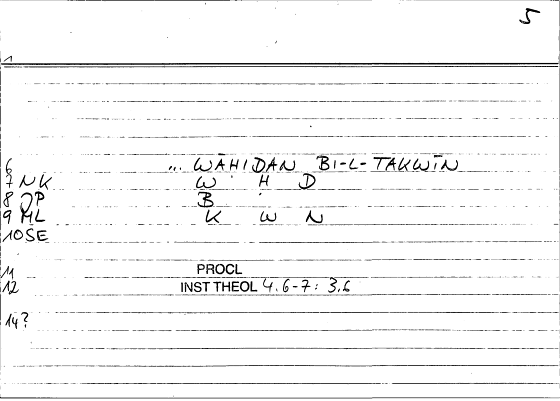 5
1
6 ... WĀHIDAN BI-L-TAKWĪN
7 NK W Ḥ D
8 JP B
9 ML K W N
10 SE
11 PROCL
12 INST THEOL 4.6-7: 3,6
14?